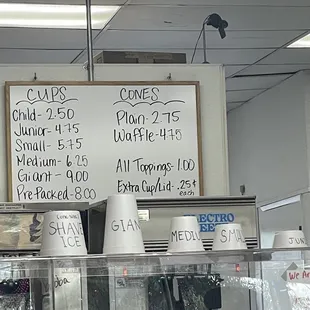 CUPS
Child - 2.50
Junior - 4.75
Small - 5.75
Medium - 6.25
Giant - 9.00
PrePacked - 8.00
CONES
Plain - 2.75
Waffle - 4.75
All Toppings - 1.00
Extra Cup/Lid - .25¢
each
SHAVE
ICE
GIAN
MEDI
SMA
JUN
We A